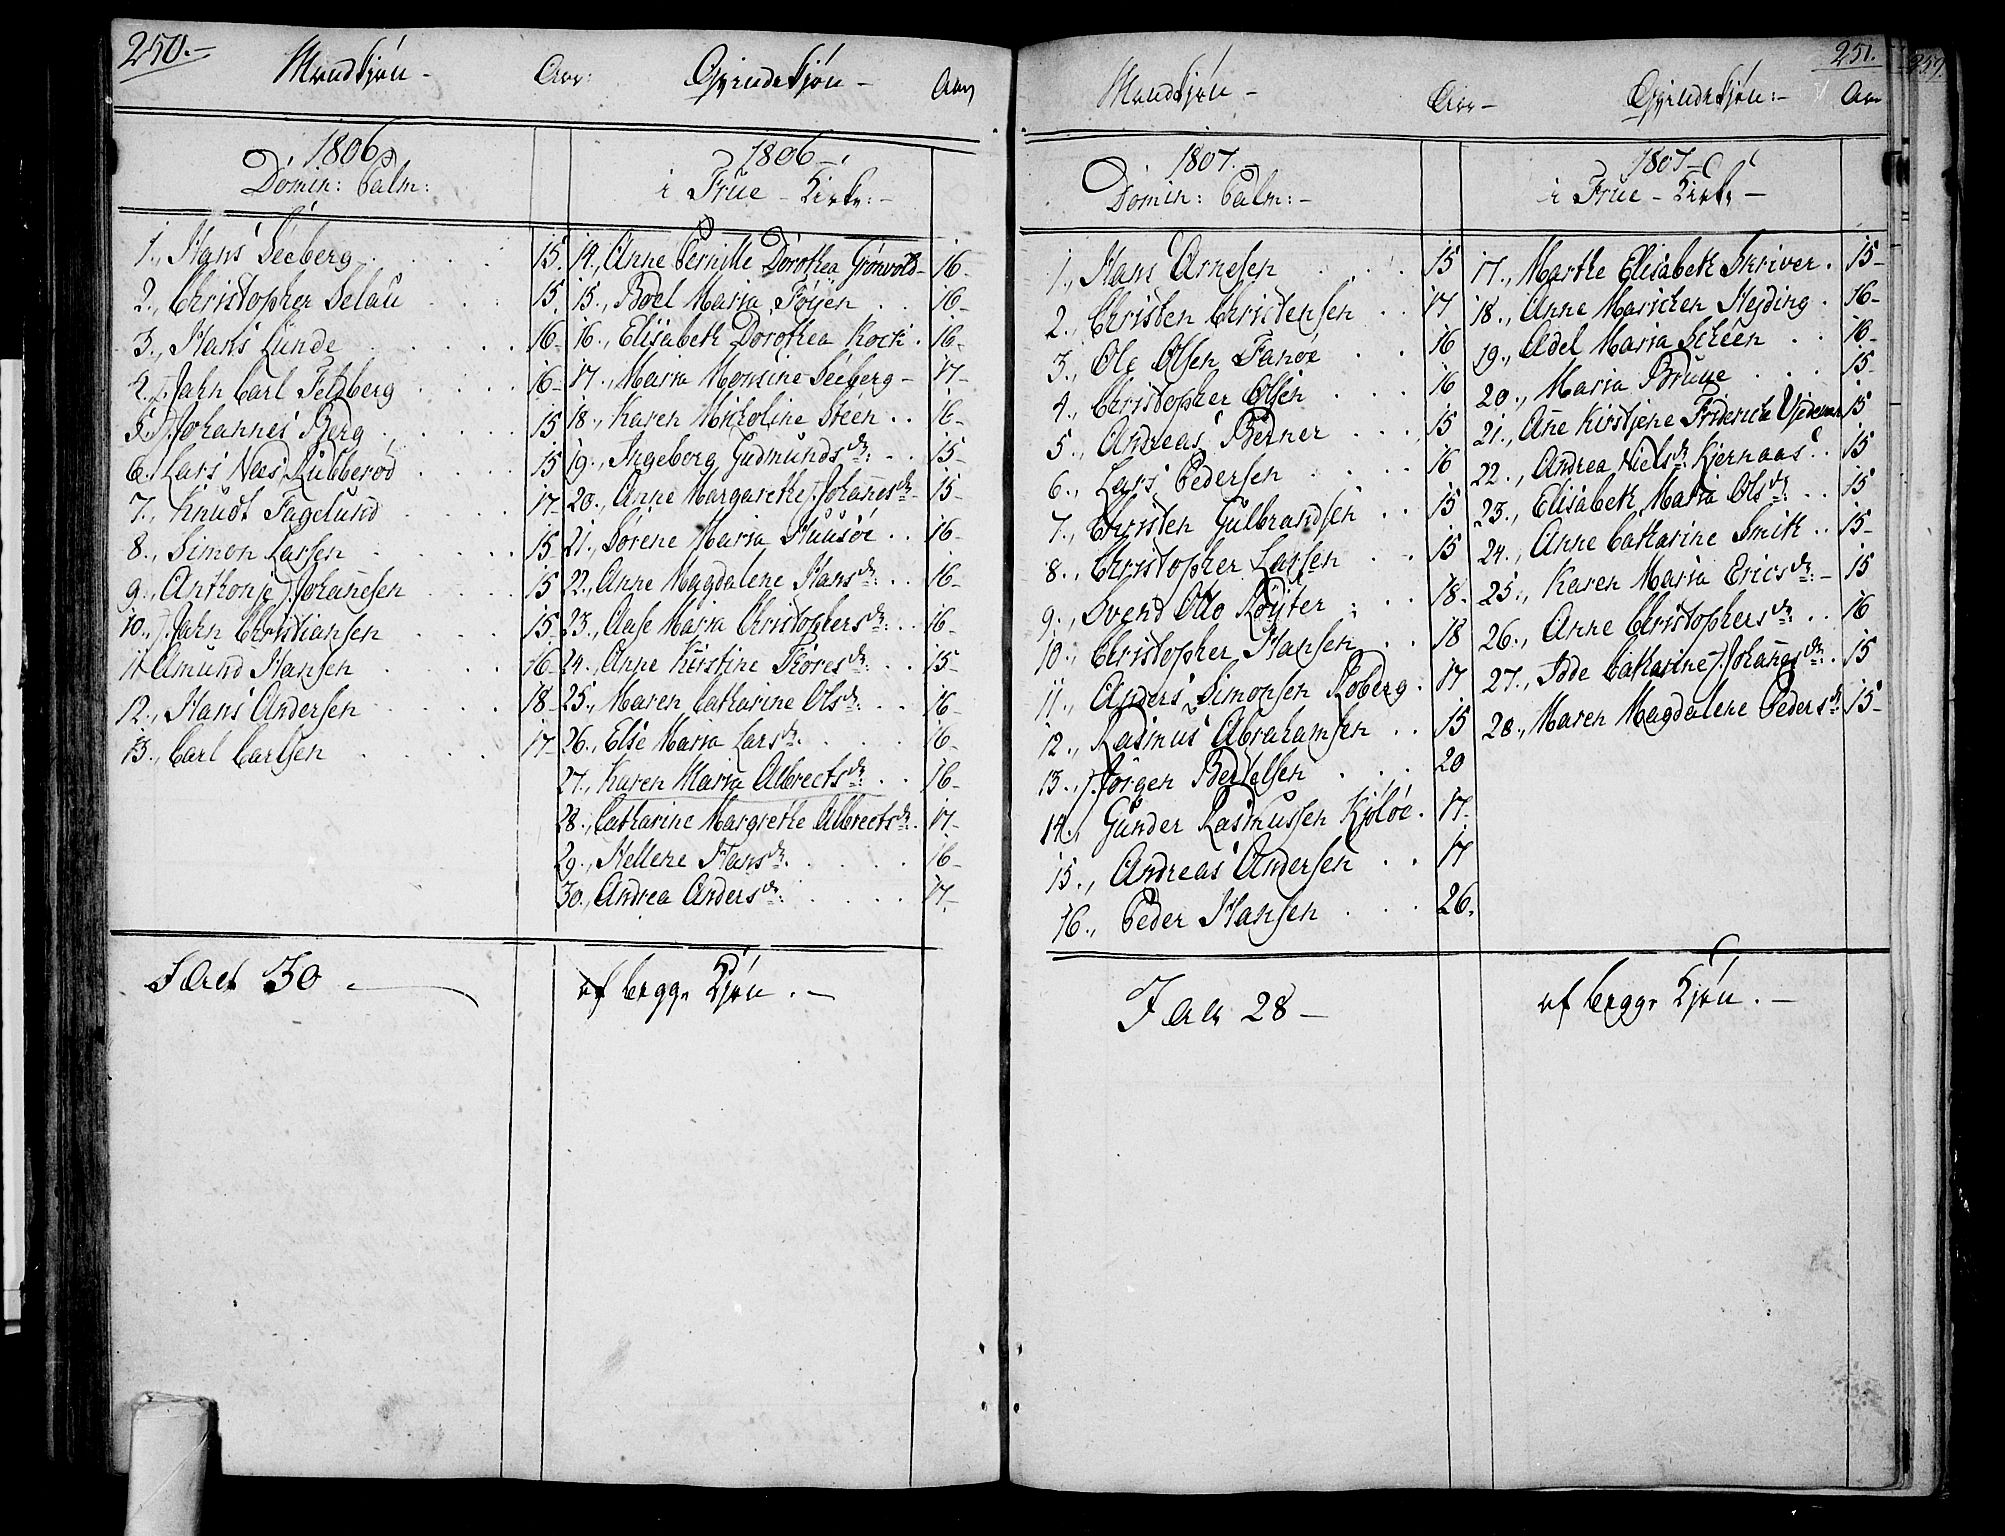 250.-
Mandkjøn - Aar: Qvindekjøn - Aar
1806
Domin: Palm:
1806 -
i Frue - Kirke: -
1., Hans Seeberg 15.
2., Christopher Selau 15.
3., Hans Lunde 16-
4., Jahn Carl Feldberg 16-
5., Johannes Berg 15
6., Lars Næs Lubberød 15
7., Knudt Fagelund 17-
8., Simon Larsen 15
9., Anthonje Johañesen 15
10., Jahn Christiansen 15-
11 Amund Hansen 16-
12., Hans Andersen 18-
13., Carl Carlsen 17-
14., Anne Pernille Dorothea Grønvold- 16-
15., Boel Maria Føyen 16-
16., Elisabeth Dorothea Kock 16-
17., Maria Monsine Seeberg - 17-
18., Karen Nicoline Steen 16-
19., Ingeborg Gudmundsdr: 15-
20., Anne Margarethe Johañesdr 15-
21., Sørene Maria Huusøe 16-
22., Anne Magdalene Hansdr: 16-
23., Aase Maria Christophersdr: 16-
24., Anne Kirstine Thoresdr: 15-
25., Maren Catharine Olsdr: 16-
26., Else Maria Larsdr: 16-
27., Karen Maria Albrectsdr: 16-
28., Catharine Margrethe Albrectsdr: 17-
29., Hellene Hansdr. 16-
30., Andrea Andersdr: 17-
I Alt 30 - af begge Kjøn. -
251.
Mandkjøn - Aar - Qvindekjøn: - Aar
1807.
Domin: Palm: -
1807 -
i Frue - Kirke -
1., Hans Arnesen 15
2., Christen Christensen 17
3., Ole Olsen Fanøe 16
4., Christopher Olsen 16
5., Andreas Berner 15
6., Lars Pedersen 16
7., Christen Gulbrandsen 15
8., Christopher Larsen 15
9., Svend Otto Røyter 18.
10., Christopher Hansen 18
11., Anders Simonsen Roberg 17
12., Rasmus Abrahamsen 15
13., Jørgen Bertelsen 20
14., Gunder Rasmussen Kjøløe 17-
15., Andreas Andersen 17
16., Peder Hansen 26.
17., Marthe Elisabeth Skriver 15-
18., Anne Marichen Hejding 16-
19., Adel Maria Scheen 16-
20., Maria Bruue 15-
21., Añe Kirstjene Friderica 15
22., Andrea Nielsdr: Kjernaas 15
23., Elisabeth Maria Olsdr: 15
24., Anne Catharine Smith 15-
25., Karen Maria Ericsdr: - 15
26., Anne Christophersdr: 16
27., Idde Catharine Johañesdr: 15
28., Maren Magdalene Pedersdr 15-
I Alt 28 - af begge Kjøn. -